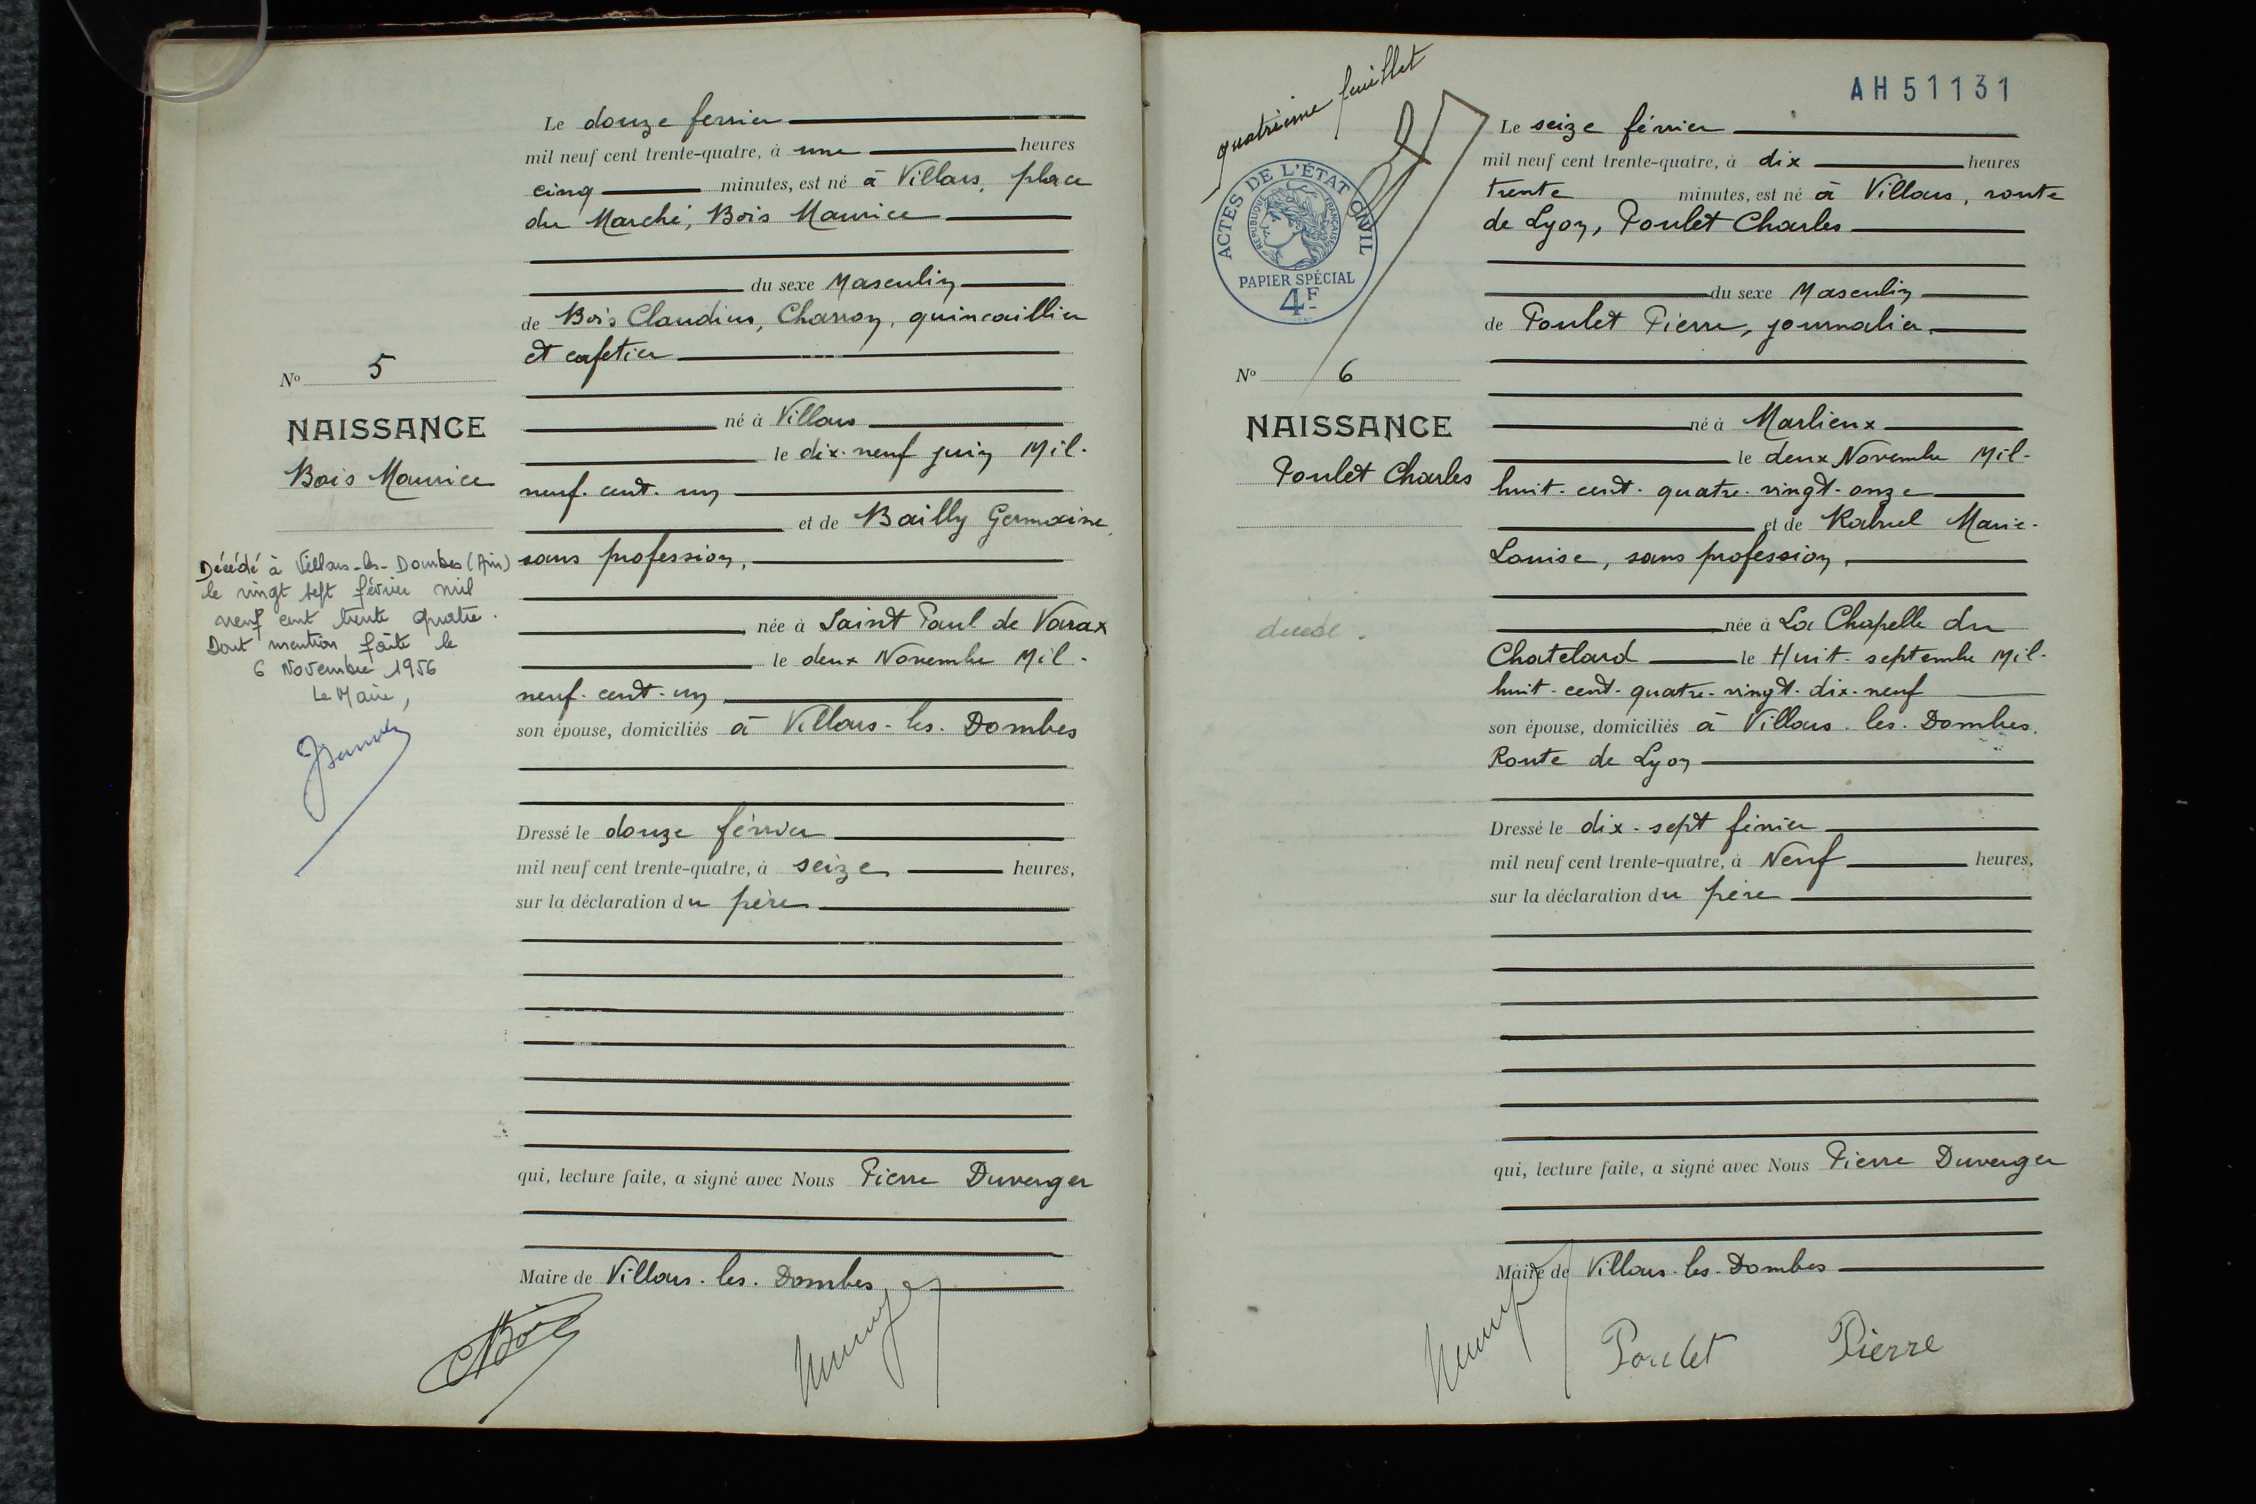 Le douze fevrier
mil neuf cent trente-quatre, à une heures
cinq minutes, est né à Villars, place
du Marché, Bois Maurice
du sexe Masculin
de Bois Claudius, Charron, quincaillier
et cafetier
N° 5
NAISSANCE
Bois Maurice
né à Villars
le dix-neuf juin Mil-
neuf-cent-un
et de Bailly Germaine,
sans profession,
née à Saint Paul de Varax
le deux Novembre Mil-
neuf-cent-un
son épouse, domiciliés à Villars-les-Dombes
Décédé à Villars-les-Dombes (Ain)
le vingt sept février mil
neuf cent trente quatre.
Dont mention faite le
6 Novembre 1956
Le Maire,
Dressé le douze février
mil neuf cent trente-quatre, à seize heures,
sur la déclaration du père
qui, lecture faite, a signé avec Nous Pierre Duverger
Maire de Villars-les-Dombes
CBois
quatrième feuillet
AH51131
ACTES DE L'ÉTAT CIVIL
RÉPUBLIQUE FRANÇAISE
PAPIER SPÉCIAL
4F
Le seize février
mil neuf cent trente-quatre, à dix heures
trente minutes, est né à Villars, route
de Lyon, Poulet Charles
du sexe Masculin
de Poulet Pierre, journalier,
N° 6
NAISSANCE
Poulet Charles
né à Marlieux
le deux Novembre Mil-
huit-cent-quatre-vingt-onze
et de Rabuel Marie-
Louise, sans profession,
décédé.
née à La Chapelle du
Chatelard le Huit-septembre Mil-
huit-cent-quatre-vingt-dix-neuf
son épouse, domiciliés à Villars-les-Dombes.
Route de Lyon
Dressé le dix-sept février
mil neuf cent trente-quatre, à Neuf heures,
sur la déclaration du père
qui, lecture faite, a signé avec Nous Pierre Duverger
Maire de Villars-les-Dombes
Poulet Pierre